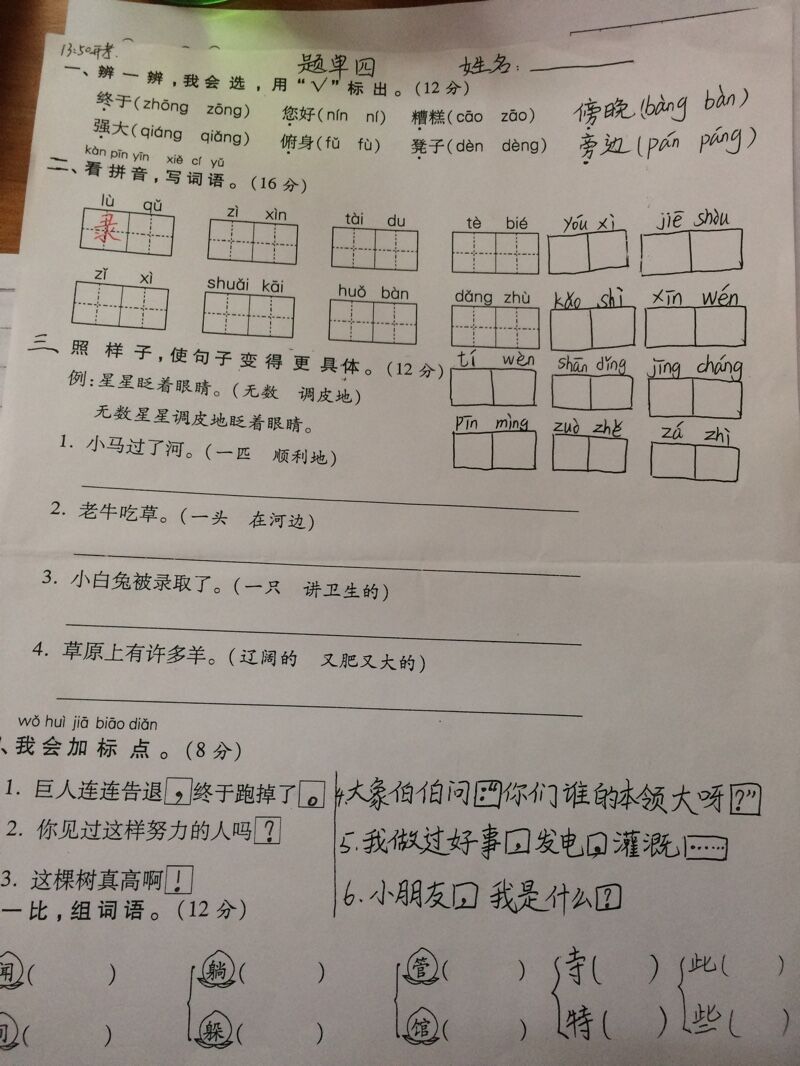 13:50开考.
题单四 姓名：
一、辨一辨，我会选，用“√”标出。（12分）
终于（zhōng zōng） 您好（nín ní） 糟糕（cāo zāo） 傍晚（bàng bàn）
强大（qiáng qiǎng） 俯身（fǔ fù） 凳子（dèn dèng） 旁边（pán páng）
kàn pīn yīn xiě cí yǔ
二、看拼音，写词语。（16分）
lù qǔ zì xìn tài du tè bié yóu xì jiē shòu
录
zǐ xì shuǎi kāi huǒ bàn dǎng zhù kǎo shì xīn wén
三、照样子，使句子变得更具体。（12分）
tí wèn shān dǐng jīng cháng
例：星星眨着眼睛。（无数 调皮地）
无数星星调皮地眨着眼睛。
pǐn míng zuò zhě zá zhì
1. 小马过了河。（一匹 顺利地）
2. 老牛吃草。（一头 在河边）
3. 小白兔被录取了。（一只 讲卫生的）
4. 草原上有许多羊。（辽阔的 又肥又大的）
wǒ huì jiā biāo diǎn
、我会加标点。（8分）
1. 巨人连连告退，终于跑掉了。
2. 你见过这样努力的人吗？
3. 这棵树真高啊！
4.大象伯伯问：“你们谁的本领大呀？”
5.我做过好事，发电，灌溉……
6.小朋友，我是什么？
一比，组词语。（12分）
闻（ ） 躺（ ） 管（ ） 寺（ ） 此（ ）
问（ ） 躲（ ） 馆（ ） 特（ ） 些（ ）